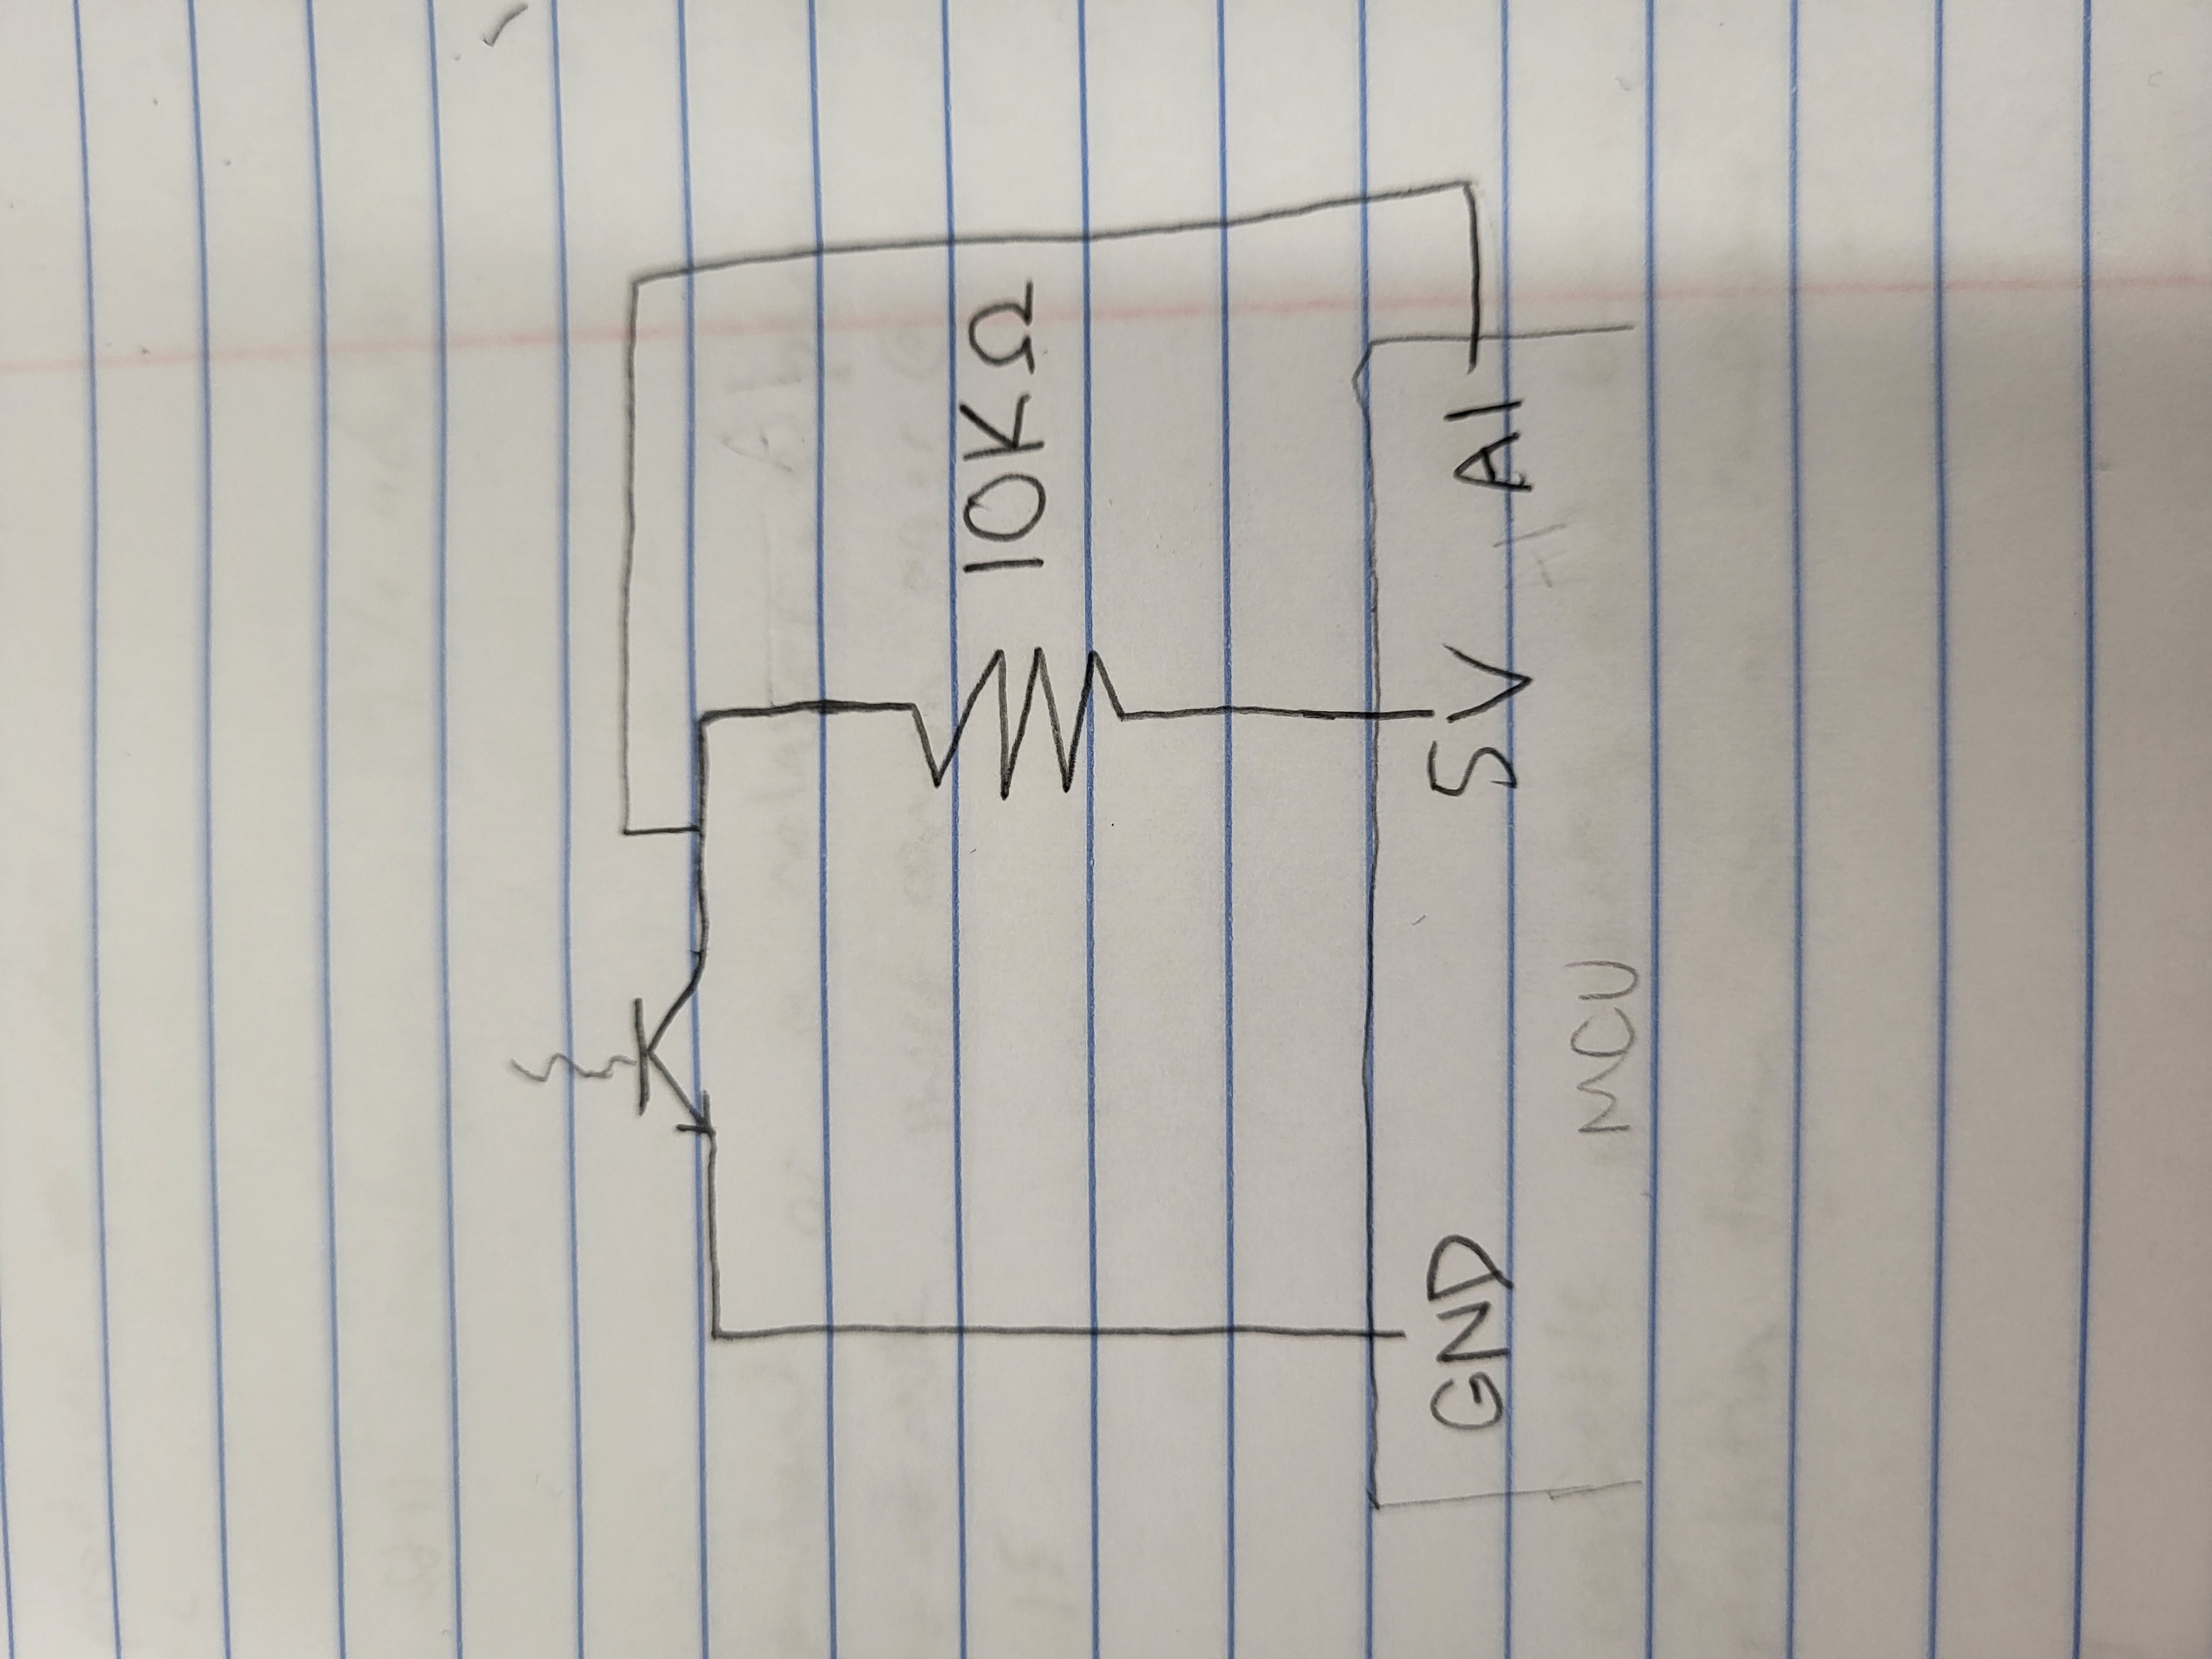 10KΩ
GND 5V A1
MCU